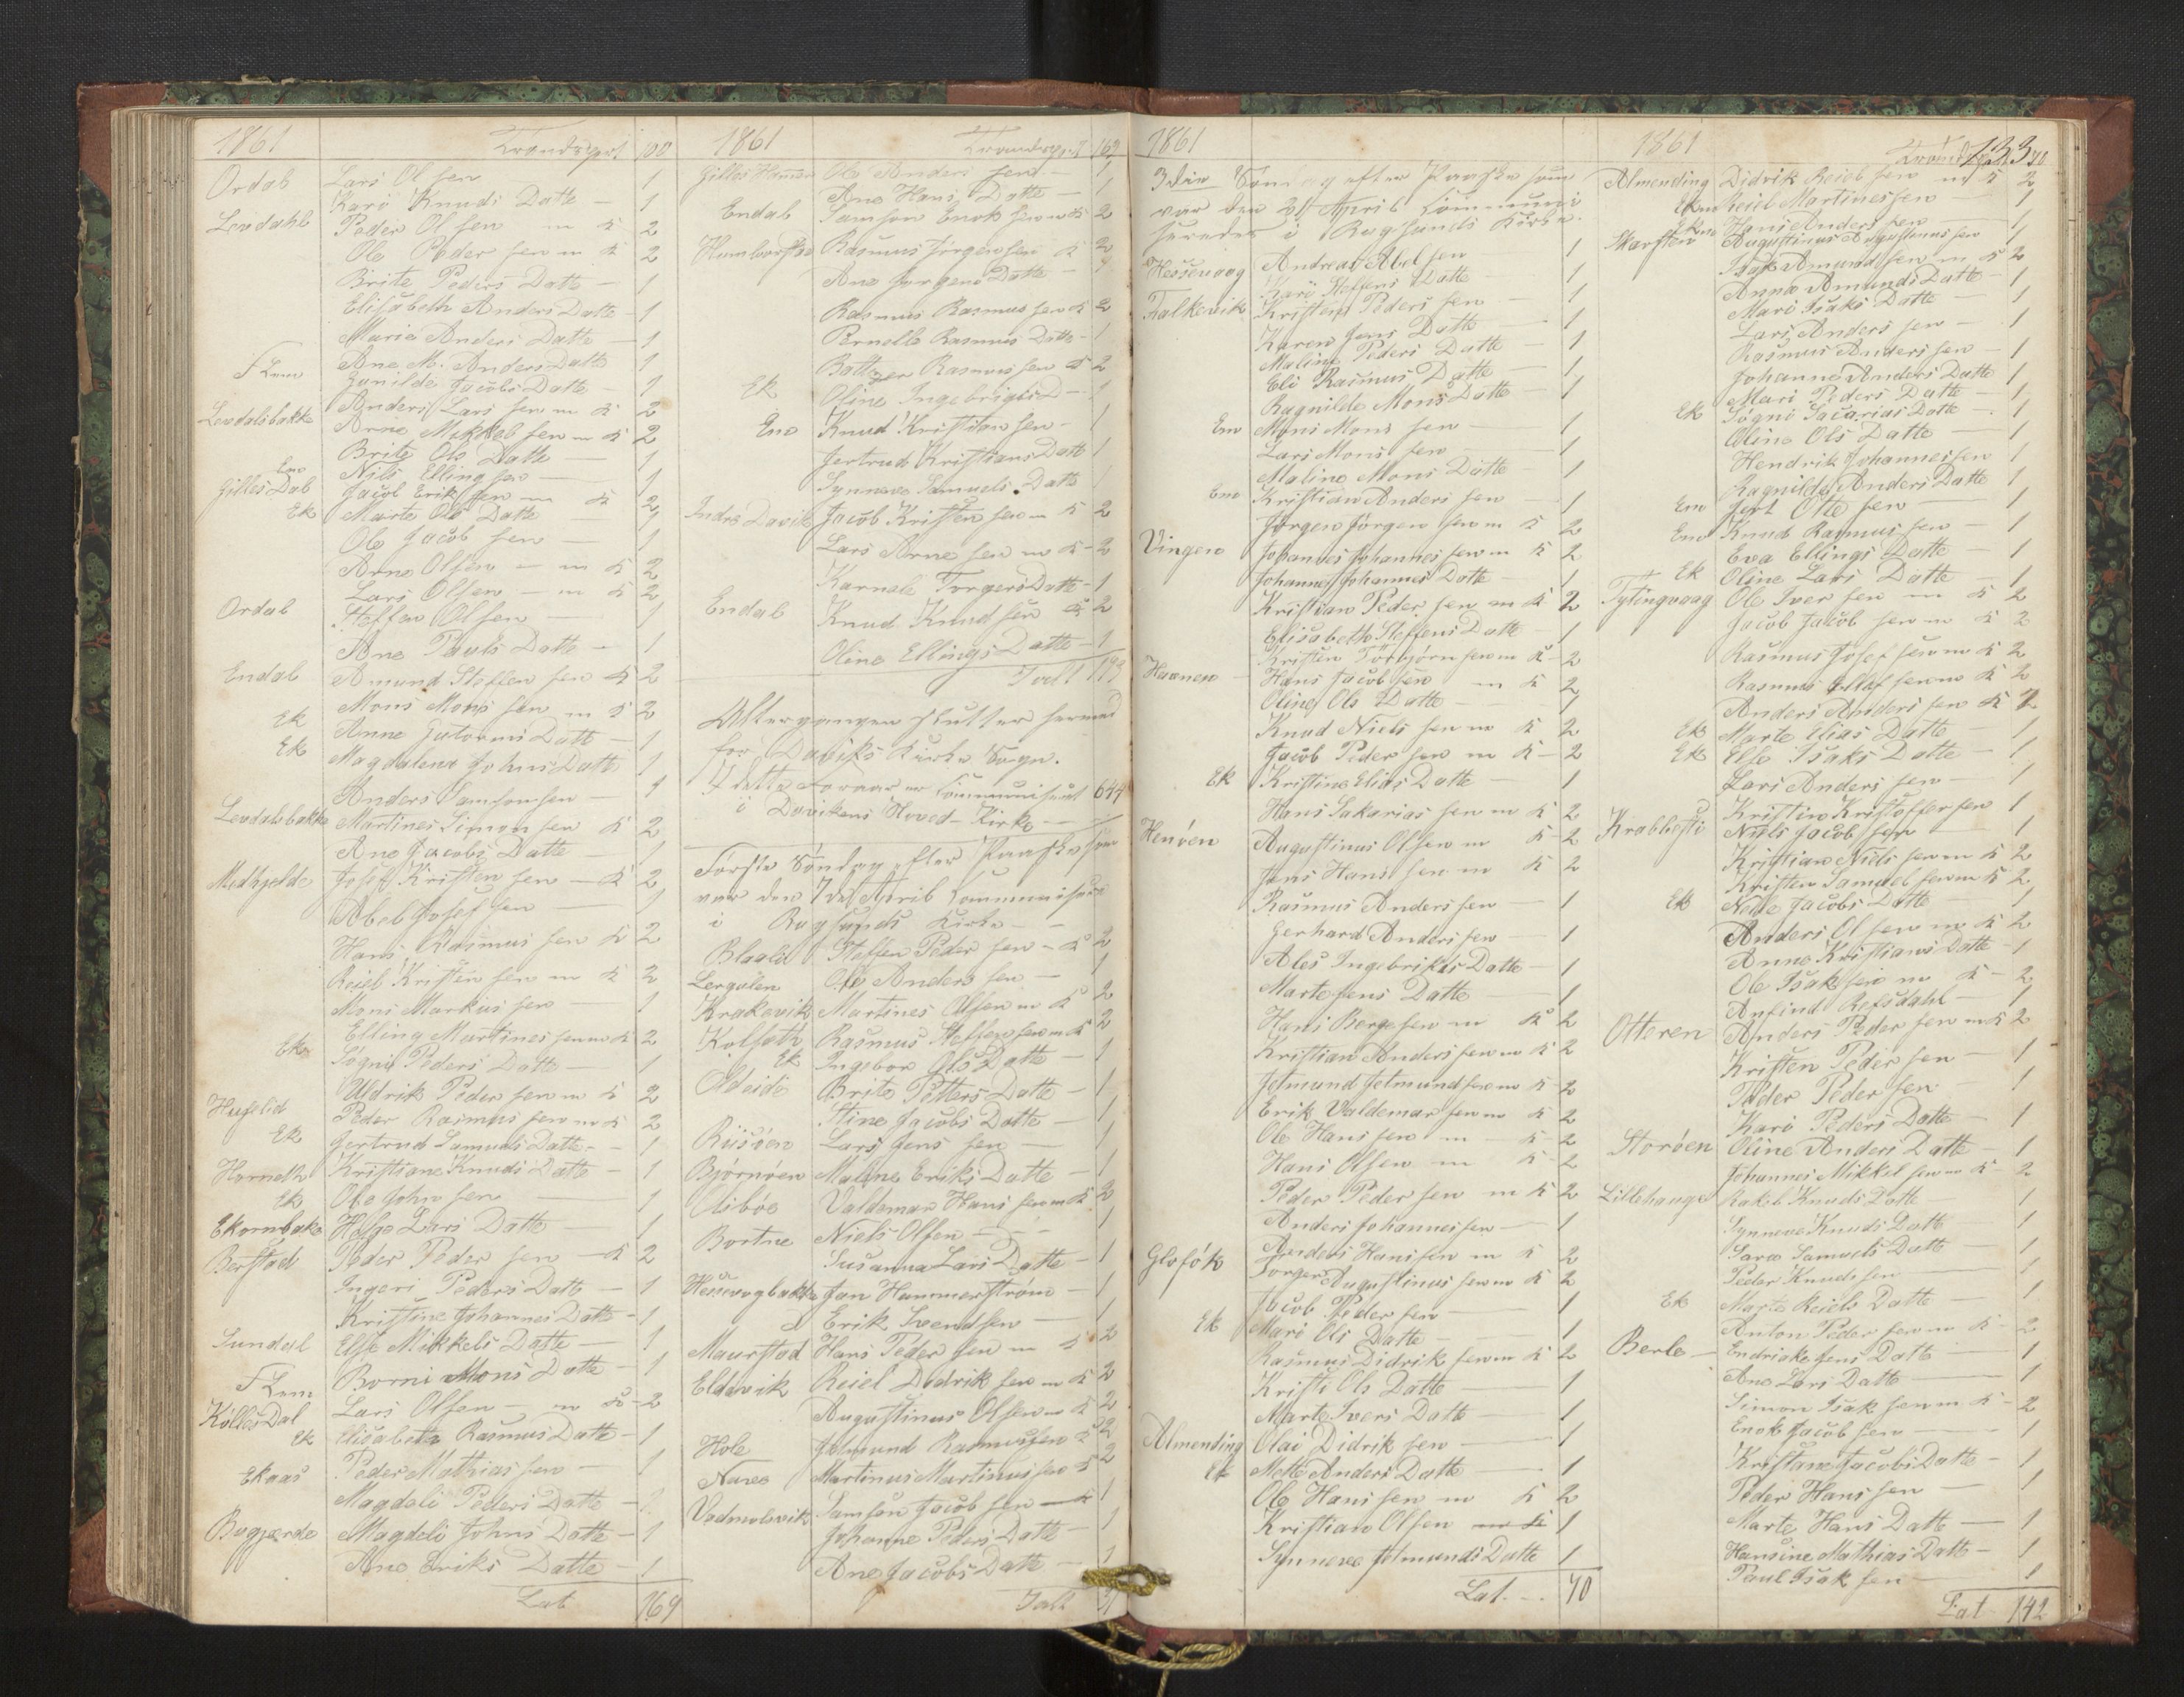 1861 Transport 100
Ordal Lars Olsen 1
Kari Knuds Datte — 1
Levdahl Peder Olsen m K 2
Ole Peder sen m K 2
Brite Peders Datte — 1
Elisabeth Anders Datte — 1
Marie Anders Datte — 1
Ane M. Anders Datte 1
Gunilde Jacobs Datte — 1
Levdalsbakke Anders Lars sen m K 2
Arne Mikkel sen m K 2
Brite Ols Datte — 1
Em Nils Elling sen — 1
Gilles Dal Jacob Erik sen m K 2
Ek Marte Ols Datte — 1
Ole Jacob sen — 1
Arne Olsen — m K 2
Lars Olsen — m K 2
Ordal Steffen Olsen — 1
Ane Pauls Datte — 1
Endal Amund Steffen sen K 2
Mons Mons sen m K 2
Ek Anne Guttorms Datte — 1
Ek Magdalena Johns Datte 1
Anders Samsonsen — 1
Levdalsbakke Martines Simon sen K 2
Ane Jacobs Datte — 1
Midhjelde Josef Kristen sen — K 2
Abel Josef sen — 1
Hans Rasmus sen K 2
Reiel Kristen sen m K 2
Mons Markus sen — 1
Elling Martines sen m K 2
Ek Søgni Peders Datte — 1
Aldrik Peder sen m K 2
Huselid Peder Rasmus sen m K 2
Ek Gertrud Samuels Datte — 1
Horneth Kristiane Knuds Datte — 1
Ek Ole John sen — 1
Ekornbake Helge Lars Datte — 1
Berstad Peder Peder sen — K 2
Ingeri Peders Datte — 1
Kristine Johannes Datte — 1
Sundal Else Mikkels Datte — 1
Borni Mons Datte — 1
Lars Olsen — m K 2
KøllesDal
Ek Elisabeth Rasmus Datte — 1
Ekaas Peder Mathias sen — 1
Magdeli Peders Datte —
Bogjærde Magdeli Johns Datte — 1
Ane Eriks Datte — 1
Lat 169
1861 Transport 169
Gilles Hammer Ole Anders sen — 1
Ane Hans Datte — 1
Endal Samson Enok sen m K 2
Rasmus Jørgensen K 2
Ane Jørgens Datte — 1
Rasmus Rasmus sen K 2
Pernelle Rasmus Datte — 1
Baltzer Rasmus sen K 2
Ek Oline Ingebrigts D — 1
Em Knud Kristian sen — 1
Jertrud Kristians Datte 1
Synneve Samuels Datte 1
Indre Davik Jacob Kristen sen m K 2
Lars Arne sen m K — 2
Karnele Torgers Datte — 1
Endal Knud Knud sen K 2
Oline Ellings Datte — 1
Ialt 193
Altergangen slutter hermed
for Daviks Kirke Sogn.
I dette Foraar er Communiseret 644
i Davikens Hoved-Kirke —
Første Søndag efter Paaske som
var den 7de April Communiseret
i Rugsunds Kirke —
Blaalid Steffen Peder sen — K 2
Lergulen Ole Anders sen — 1
Krakevik Martines Olsen m K 2
Kolseth Rasmus Steffen sen m K 2
Ek Ingebor Ols Datte — 1
Oldeide Brite Petters Datte — 1
Stine Jacobs Datte — 1
Riisøen Lars Jens sen — 1
Bjørnøen Maline Eriks Datte — 1
Valdemar Hans sen m K 2
Bortne Niels Olsen — 1
Susanna Lars Datte — 1
Hessevogbakke Jan Hammerstrøm — 1
Erik Svendsen — 1
Maurstad Hans Peder sen m K 2
Eldevik Reiel Didrik sen m K 2
Augustinus Olsen m K 2
Hole Jelmund Rasmussen K 2
Nave Martinus Martinus sen K 2
Vadmelsvik Samson Jacob sen 1
Johanne Peders Datte — 1
Ane Jacobs Datte — 1
Ialt
1861
3die Søndag efter Paaske som
var den 21 April Communi
seredes i Rugsunds Kirke.
Hessevaag Andreas Abel sen 1
Kari Steffens Datte — 1
Falkevik Kristen Peders sen 1
Karen Jens Datte — 1
Maline Peders Datte — 1
Eli Rasmus Datte — 1
Ragnilde Mons Datte — 1
Em Mons Mons sen — 1
Lars Mons sen — 1
Maline Mons Datte — 1
Em Kristian Anders sen — 1
Jørgen Jørgen sen m K 2
Vingen Johannes Johannes sen m K 2
Johanne Johannes Datte — 1
Kristian Peder sen m K 2
Elisabeth Steffens Datte — 1
Kristen Torbjørn sen m K — 2
Havnen Hans Jacob sen m K 2
Oline Ols Datte — 1
Knud Niels sen m K 2
Jacob Peder sen m K — 2
Ek Kristine Elias Datte — 1
Hans Sakarias sen m K 2
Henøen Augustinus Olsen m K — 2
Jens Hans sen m K 2
Rasmus Anders sen — 1
Gerhard Anders sen — 1
Ales Ingebrikts Datte — 1
Marte Jens Datte — 1
Hans Berge sen m K 2
Kristian Anders sen m K 2
Jelmund Jelmund sen m K — 2
Erik Valdemar sen m K 2
Ole Hans sen m — K — 2
Hans Olsen m K — 2
Peder Peder sen m K 2
Anders Johannes sen — 1
Anders Hans sen m K 2
Torger Augustinus sen m K 2
Jacob Peder sen — 1
Ek Mari Ols Datte — 1
Rasmus Didrik sen m K 2
Kristi Ols Datte — 1
Marte Ivers Datte — 1
Almending Olai Didrik sen — 1
Ek Mette Anders Datte — 1
Ole Hans sen m K 2
Kristian Olsen m K 1
Synneve Jelmunds Datte 1
Lat. — 70
1861 Transport 70
133
Almending Didrik Reiel sen m K 2
Ekm Reiel Martines sen — 1
Ekm Hans Anders sen 1
Skarsten Augustinus Augustinus sen 1
Isak Amund sen m K 2
Anna Amunds Datte — 1
Mari Isaks Datte — 1
Lars Anders sen — 1
Rasmus Anders sen — 1
Johanne Anders Datte 1
Mari Peders Datte — 1
Ek Søgni Sacarias Datte — 1
Oline Ols Datte — 1
Hendrik Johannes sen 1
Ragnilde Anders Datte 1
Em Gert Otte sen — 1
Em Knud Rasmus sen — 1
Eva Ellings Datte — 1
Ek Oline Lars Datte — 1
Tytingvaag Ole Iver sen m K 2
Jacob Jacob sen m K 2
Rasmus Josef sen m K 2
Rasmus Ellef sen m K 2
Anders Anders sen K 2
Ek Marte Elias Datte — 1
Ek Else Isaks Datte — 1
Lars Anders sen — 1
Kristen Kristoffer sen 1
Krabbesti Niels Jacob sen — 1
Kristian Niels sen m K 2
Kristen Samuel sen m K 2
Ek Nelle Jacobs Datte — 1
Anders Olsen m K 2
Anne Kristians Datte — 1
Ole Isak sen m K — 2
Anfind Refsdahl — 1
Otteren Anders Peder sen m K 2
Kristen Peder sen — 1
Peder Peder sen — 1
Kari Peders Datte — 1
Storøen Oline Anders Datte — 1
Johannes Mikkel sen m K — 2
Lillehauge Rakel Knuds Datte — 1
Synneve Knuds Datte — 1
Sara Samuels Datte — 1
Peder Knuds sen — 1
Ek Marte Reiels Datte — 1
Anton Peder sen m K — 2
Berle — Endriake Jens Datte — 1
Ane Lars Datte — 1
Simon Isak sen m K — 2
Enok Jacob sen — 1
Kristiane Jacobs Datte — 1
Peder Hans sen — 1
Marte Hans Datte — 1
Hansine Mathias Datte — 1
Paul Isak sen — 1
Lat 142